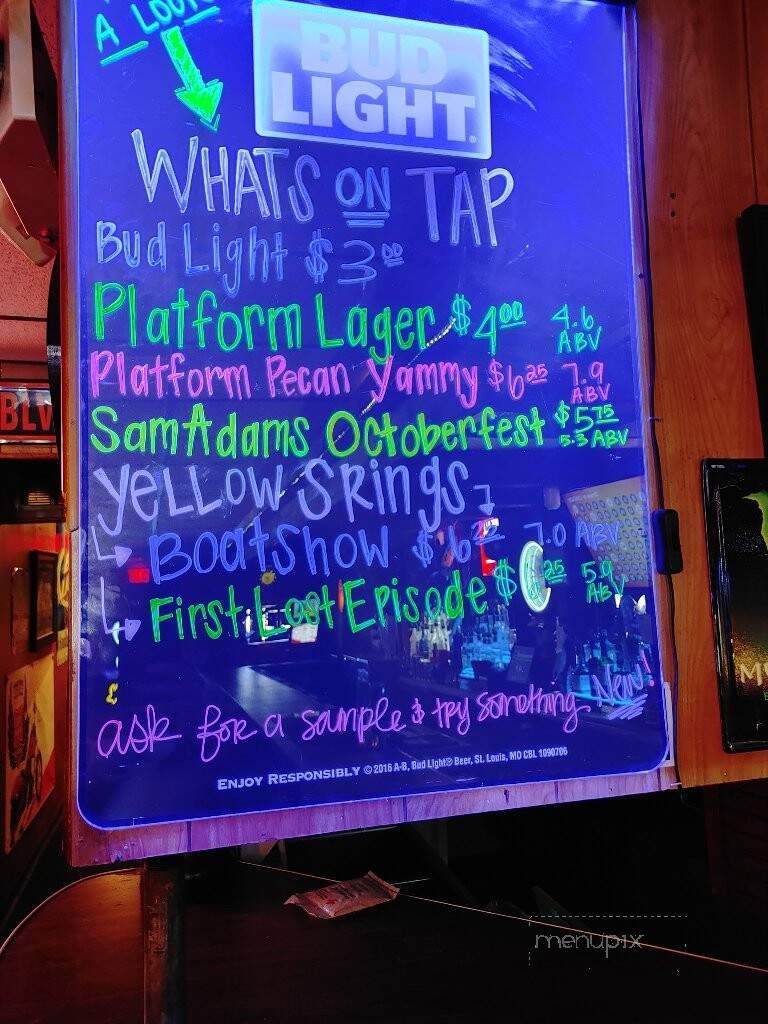 A LOOK
BUD
LIGHT
WHATS ON TAP
Bud Light $3.00
Platform Lager $4.00 4.6 ABV
Platform Pecan Yammy $6.25 7.9 ABV
Sam Adams Octoberfest $5.75 5.3 ABV
YELLOW SRings
BOatSHOW $6 7.0 ABV
First Lost Episode $6.25 5.9 ABV
ask for a sample & try something New!
ENJOY RESPONSIBLY © 2016 A-B, Bud Light® Beer, St. Louis, MO CBL 1090706
BLV
menupix